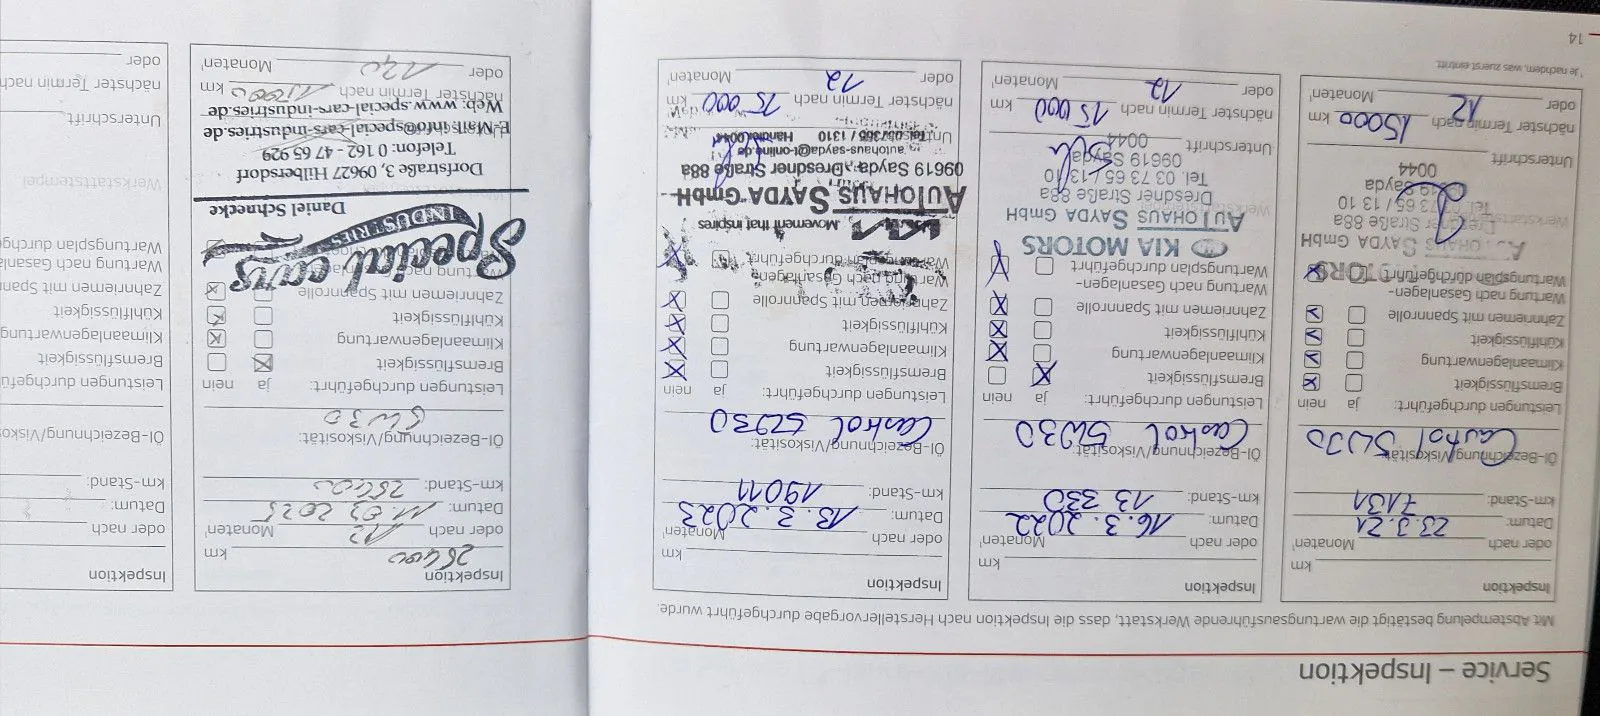 Service – Inspektion
Mit Abstempelung bestätigt die wartungsausführende Werkstatt, dass die Inspektion nach Herstellervorgabe durchgeführt wurde:
Inspektion
km
oder nach Monaten¹
Datum: 23.3.21
km-Stand: 7131
Öl-Bezeichnung/Viskosität:
Castrol 5W30
Leistungen durchgeführt: ja nein
Bremsflüssigkeit
Klimaanlagenwartung
Kühlflüssigkeit
Zahnriemen mit Spannrolle
Wartung nach Gasanlagen-
Wartungsplan durchgeführt
AUTOHAUS SAYDA GmbH
Dresdner Straße 88a
Sayda
0044
Unterschrift
nächster Termin nach 15000 km
oder 12 Monaten¹
Inspektion
km
oder nach Monaten¹
Datum: 16.3.2022
km-Stand: 13 330
Öl-Bezeichnung/Viskosität:
Castrol 5W30
Leistungen durchgeführt: ja nein
Bremsflüssigkeit
Klimaanlagenwartung
Kühlflüssigkeit
Zahnriemen mit Spannrolle
Wartung nach Gasanlagen-
Wartungsplan durchgeführt
KIA MOTORS
AUTOHAUS SAYDA GmbH
Dresdner Straße 88a
Tel. 03 73 65 / 13 10
09619 Sayda
0044
Unterschrift
nächster Termin nach 15 000 km
oder 12 Monaten¹
Inspektion
km
oder nach Monaten¹
Datum: 13.3.2023
km-Stand: 19011
Öl-Bezeichnung/Viskosität:
Castrol 5W30
Leistungen durchgeführt: ja nein
Bremsflüssigkeit
Klimaanlagenwartung
Kühlflüssigkeit
Zahnriemen mit Spannrolle
Wartung nach Gasanlagen-
Wartungsplan durchgeführt
Movement that inspires
AUTOHAUS SAYDA GmbH
09619 Sayda, Dresdner Straße 88a
autohaus-sayda@t-online.de
Händler 0044
nächster Termin nach 15 000 km
oder 12 Monaten¹
¹ Je nachdem, was zuerst eintritt.
14
Inspektion
26400 km
oder nach 12 Monaten¹
Datum: 11.03.2025
km-Stand: 26400
Öl-Bezeichnung/Viskosität:
5W30
Leistungen durchgeführt: ja nein
Bremsflüssigkeit
Klimaanlagenwartung
Kühlflüssigkeit
Zahnriemen mit Spannrolle
Special cars
INDUSTRIES
Daniel Schnecke
Dorfstraße 3, 09627 Hilbersdorf
Telefon: 0 162 - 47 65 929
E-Mail: info@special-cars-industries.de
Web: www.special-cars-industries.de
nächster Termin nach km
oder Monaten¹
Inspektion
oder nach
Datum:
km-Stand:
Leistungen
Bremsflüssigkeit
Klimaanlagenwartung
Kühlflüssigkeit
Werkstattstempel
Unterschrift
nächster Termin nach
oder